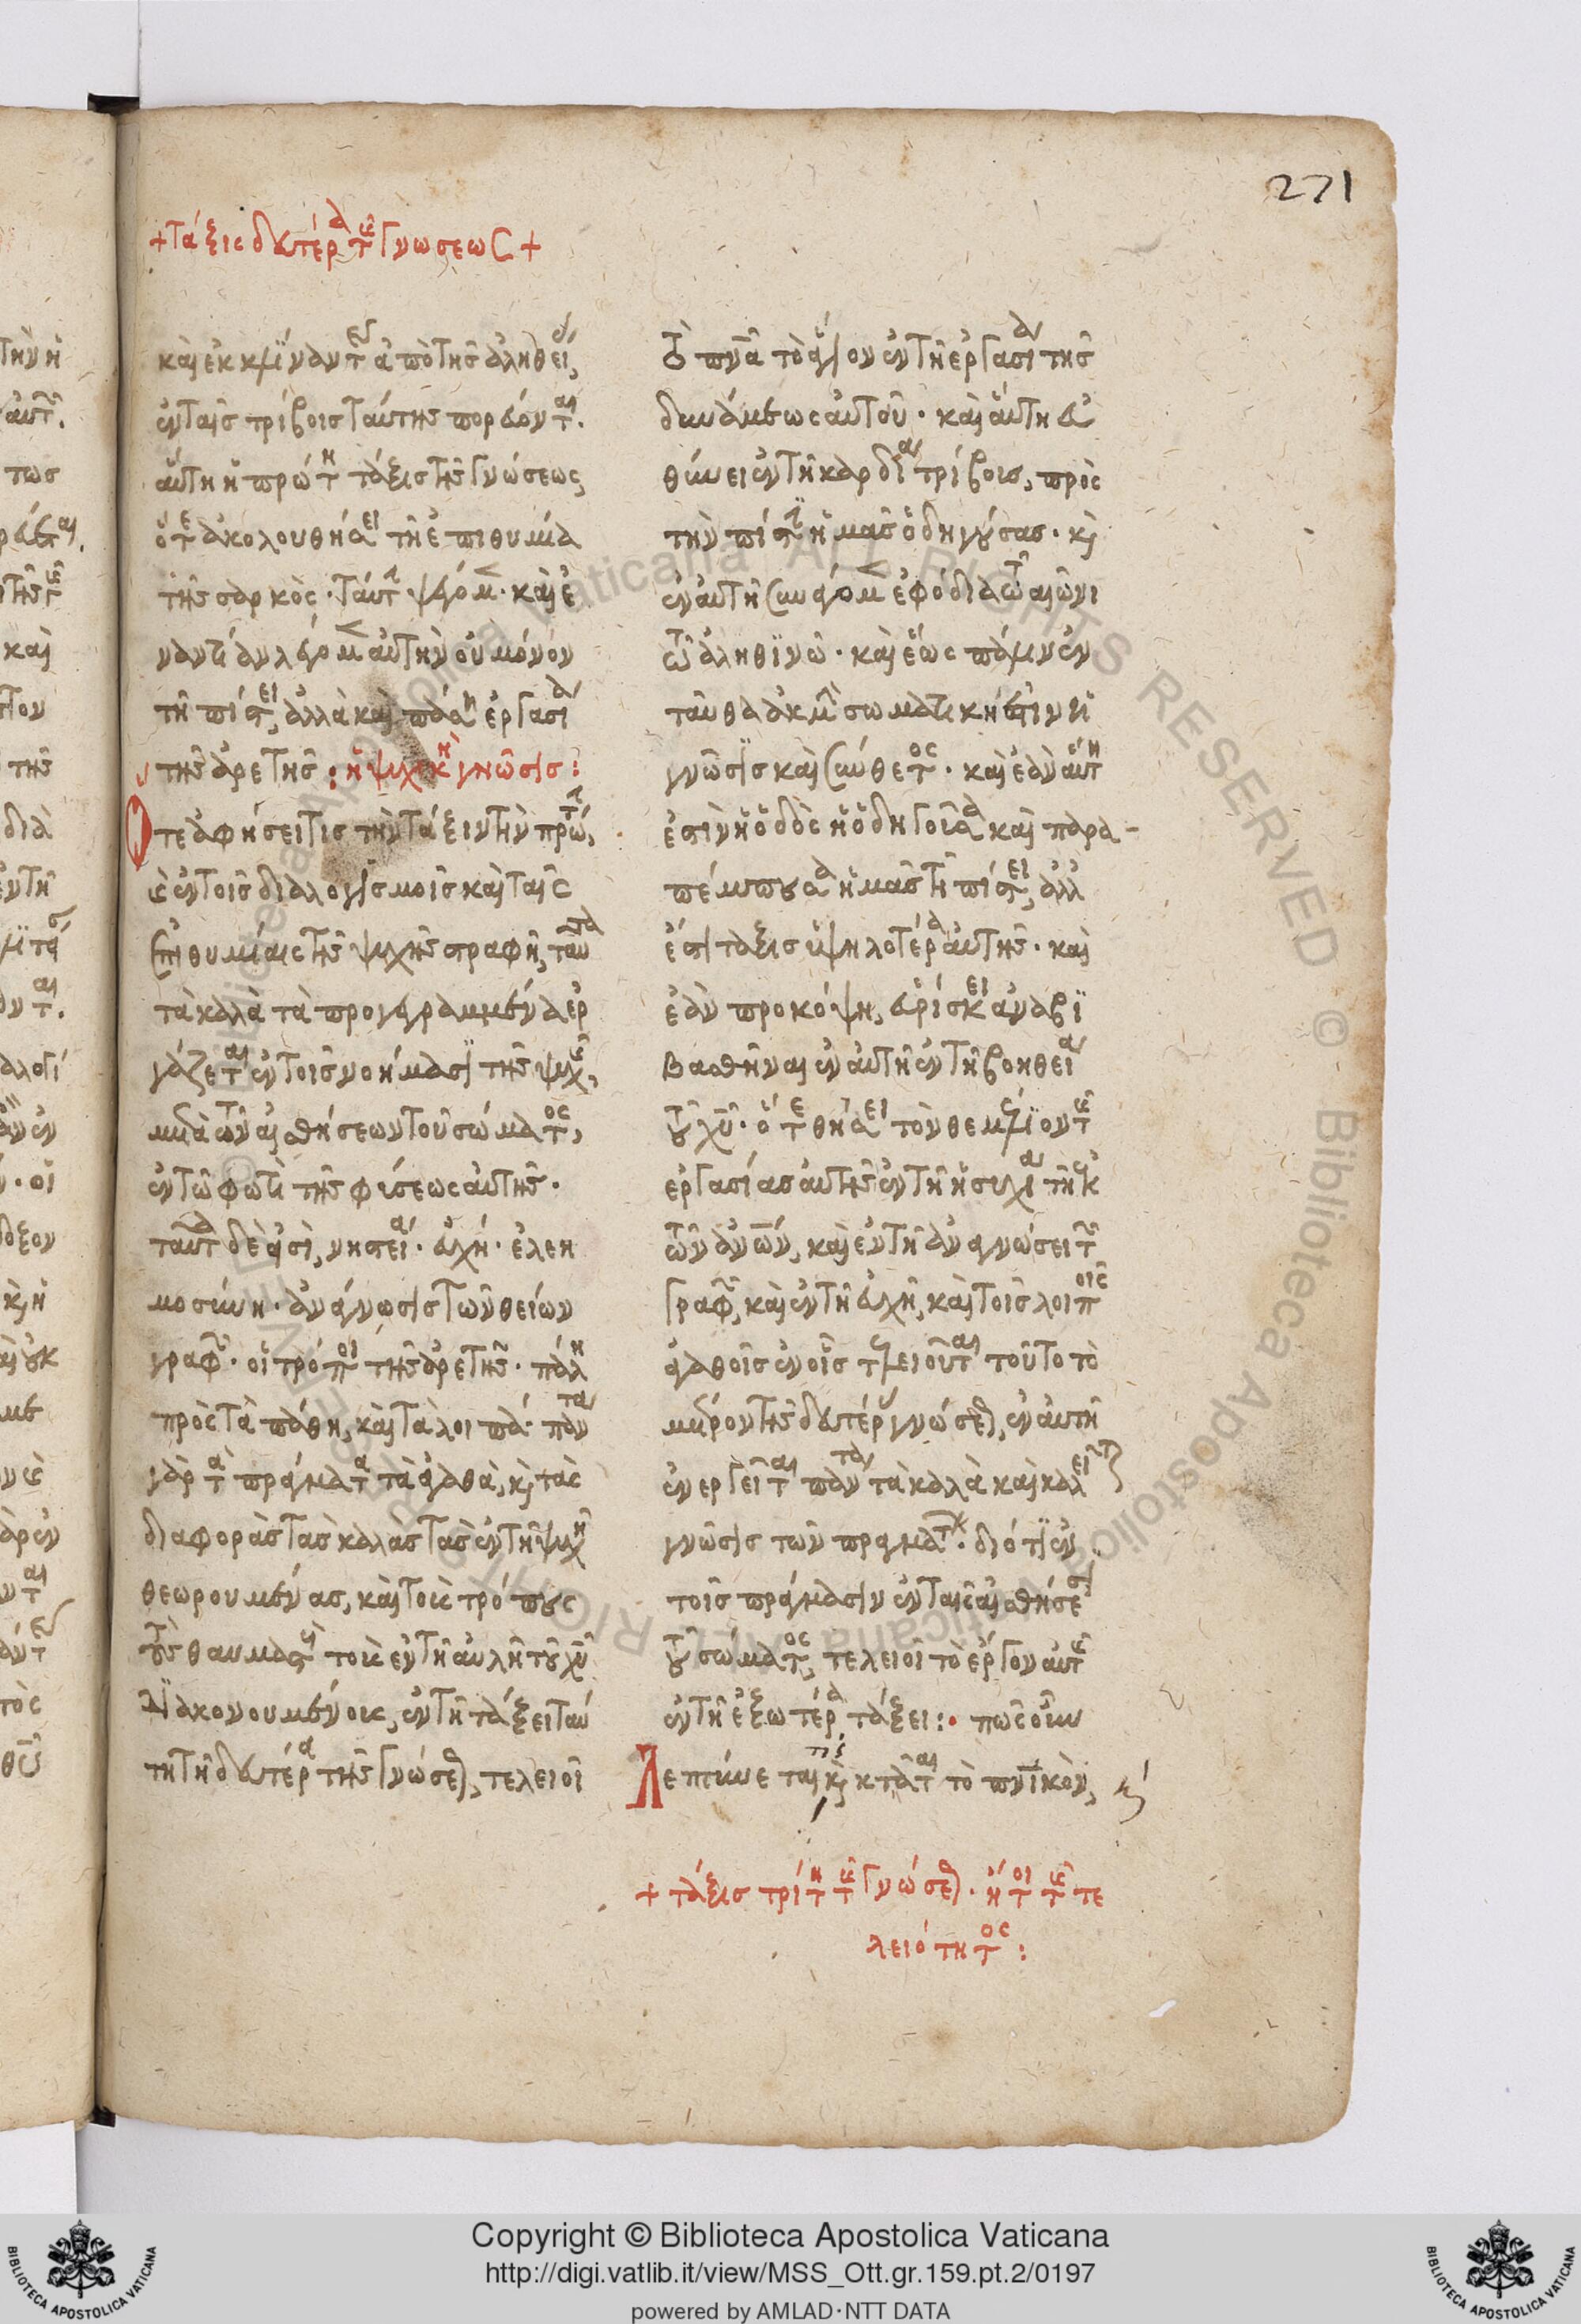 271
+ Τάξις δευτέρα τῆς γνώσεως +
καὶ ἐκκλίναντες ἀπὸ τῆς ἀληθείας,
ἐν ταῖς τρίβοις ταύτης πορεύονται.
αὕτη ἡ πρώτη τάξις τῆς γνώσεως,
ὅτε ἀκολουθήσει τῇ ἐπιθυμία
τῆς σαρκός· ταύτην ψέγομεν· καὶ ἐ
ναντίαν λέγομεν αὐτὴν οὐ μόνον
τῇ πίστει, ἀλλὰ καὶ πάσῃ ἐργασία
τῆς ἀρετῆς: ἡ ψυχικὴ γνῶσις:
Ὅτε ἀφήσει τις τὴν τάξιν τὴν πρώτην,
καὶ ἐν τοῖς διαλογισμοῖς καὶ ταῖς
ἐπιθυμίαις τῆς ψυχῆς στραφῇ, ταῦτα
τὰ καλὰ τὰ προγεγραμμένα ἐρ
γάζεται ἐν τοῖς νοήμασι τῆς ψυχῆς,
μετὰ τῶν αἰσθήσεων τοῦ σώματος,
ἐν τῷ φωτὶ τῆς φύσεως αὐτῆς.
ταῦτα δέ εἰσι, νηστεία· εὐχή· ἐλεη
μοσύνη· ἀνάγνωσις τῶν θείων
γραφῶν· οἱ τρόποι τῆς ἀρετῆς· πάλη
πρὸς τὰ πάθη, καὶ τὰ λοιπά· πάντα
γὰρ τὰ πράγματα τὰ ἀγαθὰ, καὶ τὰς
διαφορὰς τὰς καλὰς τὰς ἐν τῇ ψυχῇ
θεωρουμένας, καὶ τοὺς τρόπους
τοὺς θαυμαστοὺς τοῖς ἐν τῇ αὐλῇ τοῦ χυ
διακονουμένοις, ἐν τῇ τάξει ταύ
τῃ τῇ δευτέρα τῆς γνώσεως, τελειοῖ
τὸ πνα τὸ ἅγιον ἐν τῇ ἐργασία τῆς
δυνάμεως αὐτοῦ· καὶ αὕτη εὐ
θύνει ἐν τῇ καρδία τρίβους, πρὸς
τὴν πίστιν ἡμᾶς ὁδηγούσας· καὶ
ἐν αὐτῇ συνάγομεν ἐφόδια τῷ αἰῶνι
τῷ ἀληθινῷ· καὶ ἕως πάλιν ἐν
ταῦθα ἀκμὴν σωματική ἐστιν ἡ
γνῶσις καὶ σύνθετος· καὶ ἐὰν αὕτη
ἐστὶν ἡ ὁδὸς ἡ ὁδηγοῦσα καὶ παρα-
πέμπουσα ἡμᾶς τῇ πίστει, ἀλλ
ἔστι τάξις ὑψηλοτέρα αὐτῆς· καὶ
ἐὰν προκόψῃ, εὑρίσκει ἀναβι
βασθῆναι ἐν αὐτῇ ἐν τῇ βοηθεία
τοῦ χυ· ὅτε θήσει τὸν θεμέλιον τῆς
ἐργασίας αὐτῆς ἐν τῇ ἡσυχία τῇ ἐκ
τῶν ἀνων, καὶ ἐν τῇ ἀναγνώσει τῶν
γραφῶν, καὶ ἐν τῇ εὐχῇ, καὶ τοῖς λοιποῖς
ἀγαθοῖς ἐν οἷς τελειοῦται τοῦτο τὸ
μέρον τῆς δευτέρας γνώσεως, ἐν αὐτῇ
ἐνεργεῖται πάντα τὰ καλὰ καὶ καλεῖται
γνῶσις τῶν πραγμάτων· διότι ἐν
τοῖς πράγμασιν ἐν ταῖς αἰσθήσεσι
τοῦ σώματος, τελειοῖ τὸ ἔργον αὐτῆς
ἐν τῇ ἐξωτέρα τάξει: πῶς οὖν
Λεπτύνεται τις καὶ κτᾶται τὸ πνικὸν,
+ τάξις τρίτη τῆς γνώσεως· ἤτοι τῆς τε
λειότητος:
Copyright © Biblioteca Apostolica Vaticana
http://digi.vatlib.it/view/MSS_Ott.gr.159.pt.2/0197
powered by AMLAD·NTT DATA